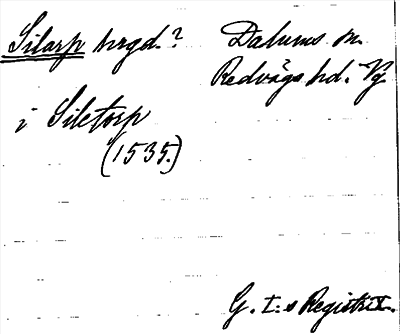 Silarp hrgd.? Dalums sn.
Redvägs hd. Vg.
i Siletorp
(1535.)
G. I:s Registr.